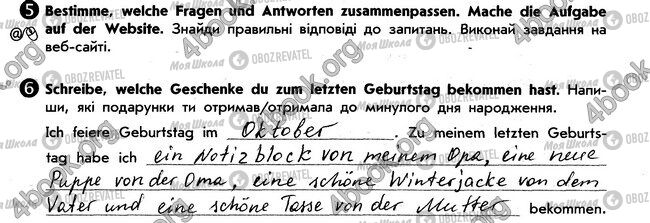 5 Bestimme, welche Fragen und Antworten zusammenpassen. Mache die Aufgabe
auf der Website. Знайди правильні відповіді до запитань. Виконай завдання на
веб-сайті.
6 Schreibe, welche Geschenke du zum letzten Geburtstag bekommen hast. Напи-
ши, які подарунки ти отримав/отримала до минулого дня народження.
Ich feiere Geburtstag im Oktober. Zu meinem letzten Geburts-
tag habe ich ein Notizblock von meinem Opa, eine neue
Puppe von der Oma, eine schöne Winterjacke von dem
Vater und eine schöne Tasse von der Mutter bekommen.